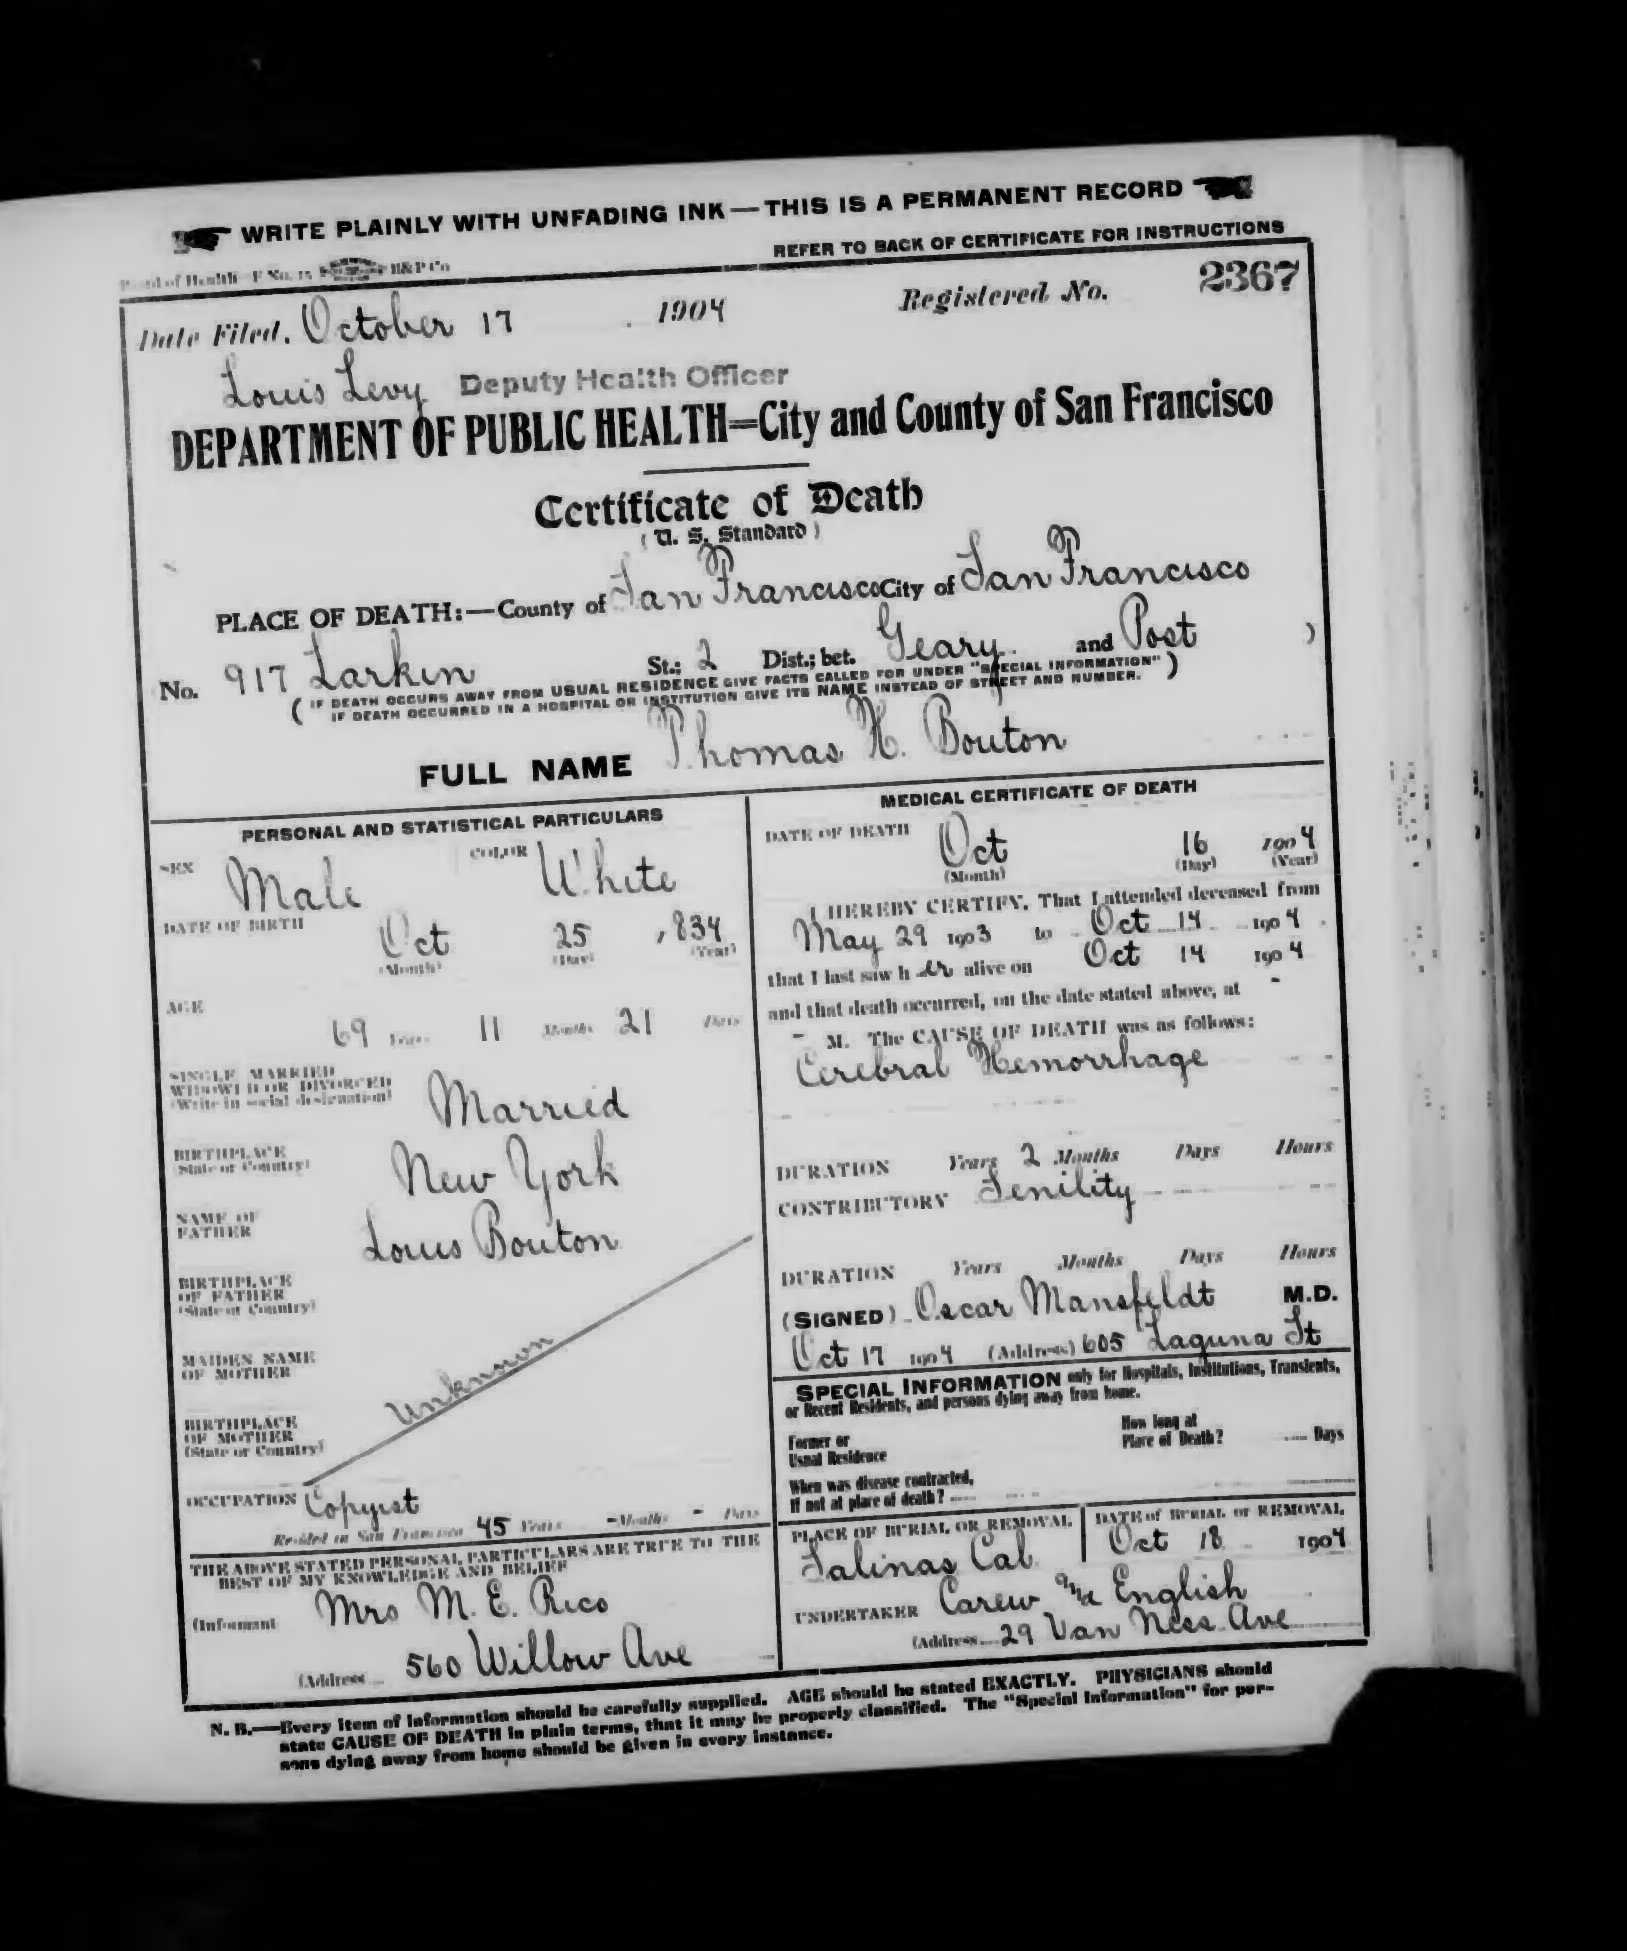 WRITE PLAINLY WITH UNFADING INK—THIS IS A PERMANENT RECORD
REFER TO BACK OF CERTIFICATE FOR INSTRUCTIONS
Board of Health—F No. 15 H&P Co
Date Filed, October 17 1904 Registered No. 2367
Louis Levy Deputy Health Officer
DEPARTMENT OF PUBLIC HEALTH=City and County of San Francisco
Certificate of Death
(U. S. Standard)
PLACE OF DEATH:—County of San Francisco City of San Francisco
No. 917 Larkin St.; 2 Dist.; bet. Geary and Post )
( IF DEATH OCCURS AWAY FROM USUAL RESIDENCE GIVE FACTS CALLED FOR UNDER "SPECIAL INFORMATION" )
IF DEATH OCCURRED IN A HOSPITAL OR INSTITUTION GIVE ITS NAME INSTEAD OF STREET AND NUMBER.
FULL NAME Thomas H. Bouton
PERSONAL AND STATISTICAL PARTICULARS
SEX Male COLOR White
DATE OF BIRTH Oct 25 , 834
(Month) (Day) (Year)
AGE
69 Years 11 Months 21 Days
SINGLE MARRIED
WIDOWED OR DIVORCED
(Write in social designation) Married
BIRTHPLACE
(State or Country) New York
NAME OF
FATHER Louis Bouton
BIRTHPLACE
OF FATHER
(State or Country)
MAIDEN NAME
OF MOTHER
Unknown
BIRTHPLACE
OF MOTHER
(State or Country)
OCCUPATION Copyist
Resided in San Francisco 45 Years - Months - Days
THE ABOVE STATED PERSONAL PARTICULARS ARE TRUE TO THE
BEST OF MY KNOWLEDGE AND BELIEF
(Informant Mrs M. E. Rico
(Address 560 Willow Ave
MEDICAL CERTIFICATE OF DEATH
DATE OF DEATH Oct 16 1904
(Month) (Day) (Year)
I HEREBY CERTIFY, That I attended deceased from
May 29 1903 to Oct 14 1904
that I last saw h er alive on Oct 14 1904
and that death occurred, on the date stated above, at -
- M. The CAUSE OF DEATH was as follows:
Cerebral Hemorrhage
DURATION Years 2 Months Days Hours
CONTRIBUTORY Senility
DURATION Years Months Days Hours
(SIGNED) Oscar Mansfeldt M.D.
Oct 17 1904 (Address) 605 Laguna St
SPECIAL INFORMATION only for Hospitals, Institutions, Transients,
or Recent Residents, and persons dying away from home.
Former or
Usual Residence
How long at
Place of Death? ..... Days
When was disease contracted,
If not at place of death?
PLACE OF BURIAL OR REMOVAL
Salinas Cal
DATE of BURIAL or REMOVAL
Oct 18 1904
UNDERTAKER Carew and English
(Address 29 Van Ness Ave
N. B.—Every item of information should be carefully supplied. AGE should be stated EXACTLY. PHYSICIANS should
state CAUSE OF DEATH in plain terms, that it may be properly classified. The "Special Information" for per-
sons dying away from home should be given in every instance.